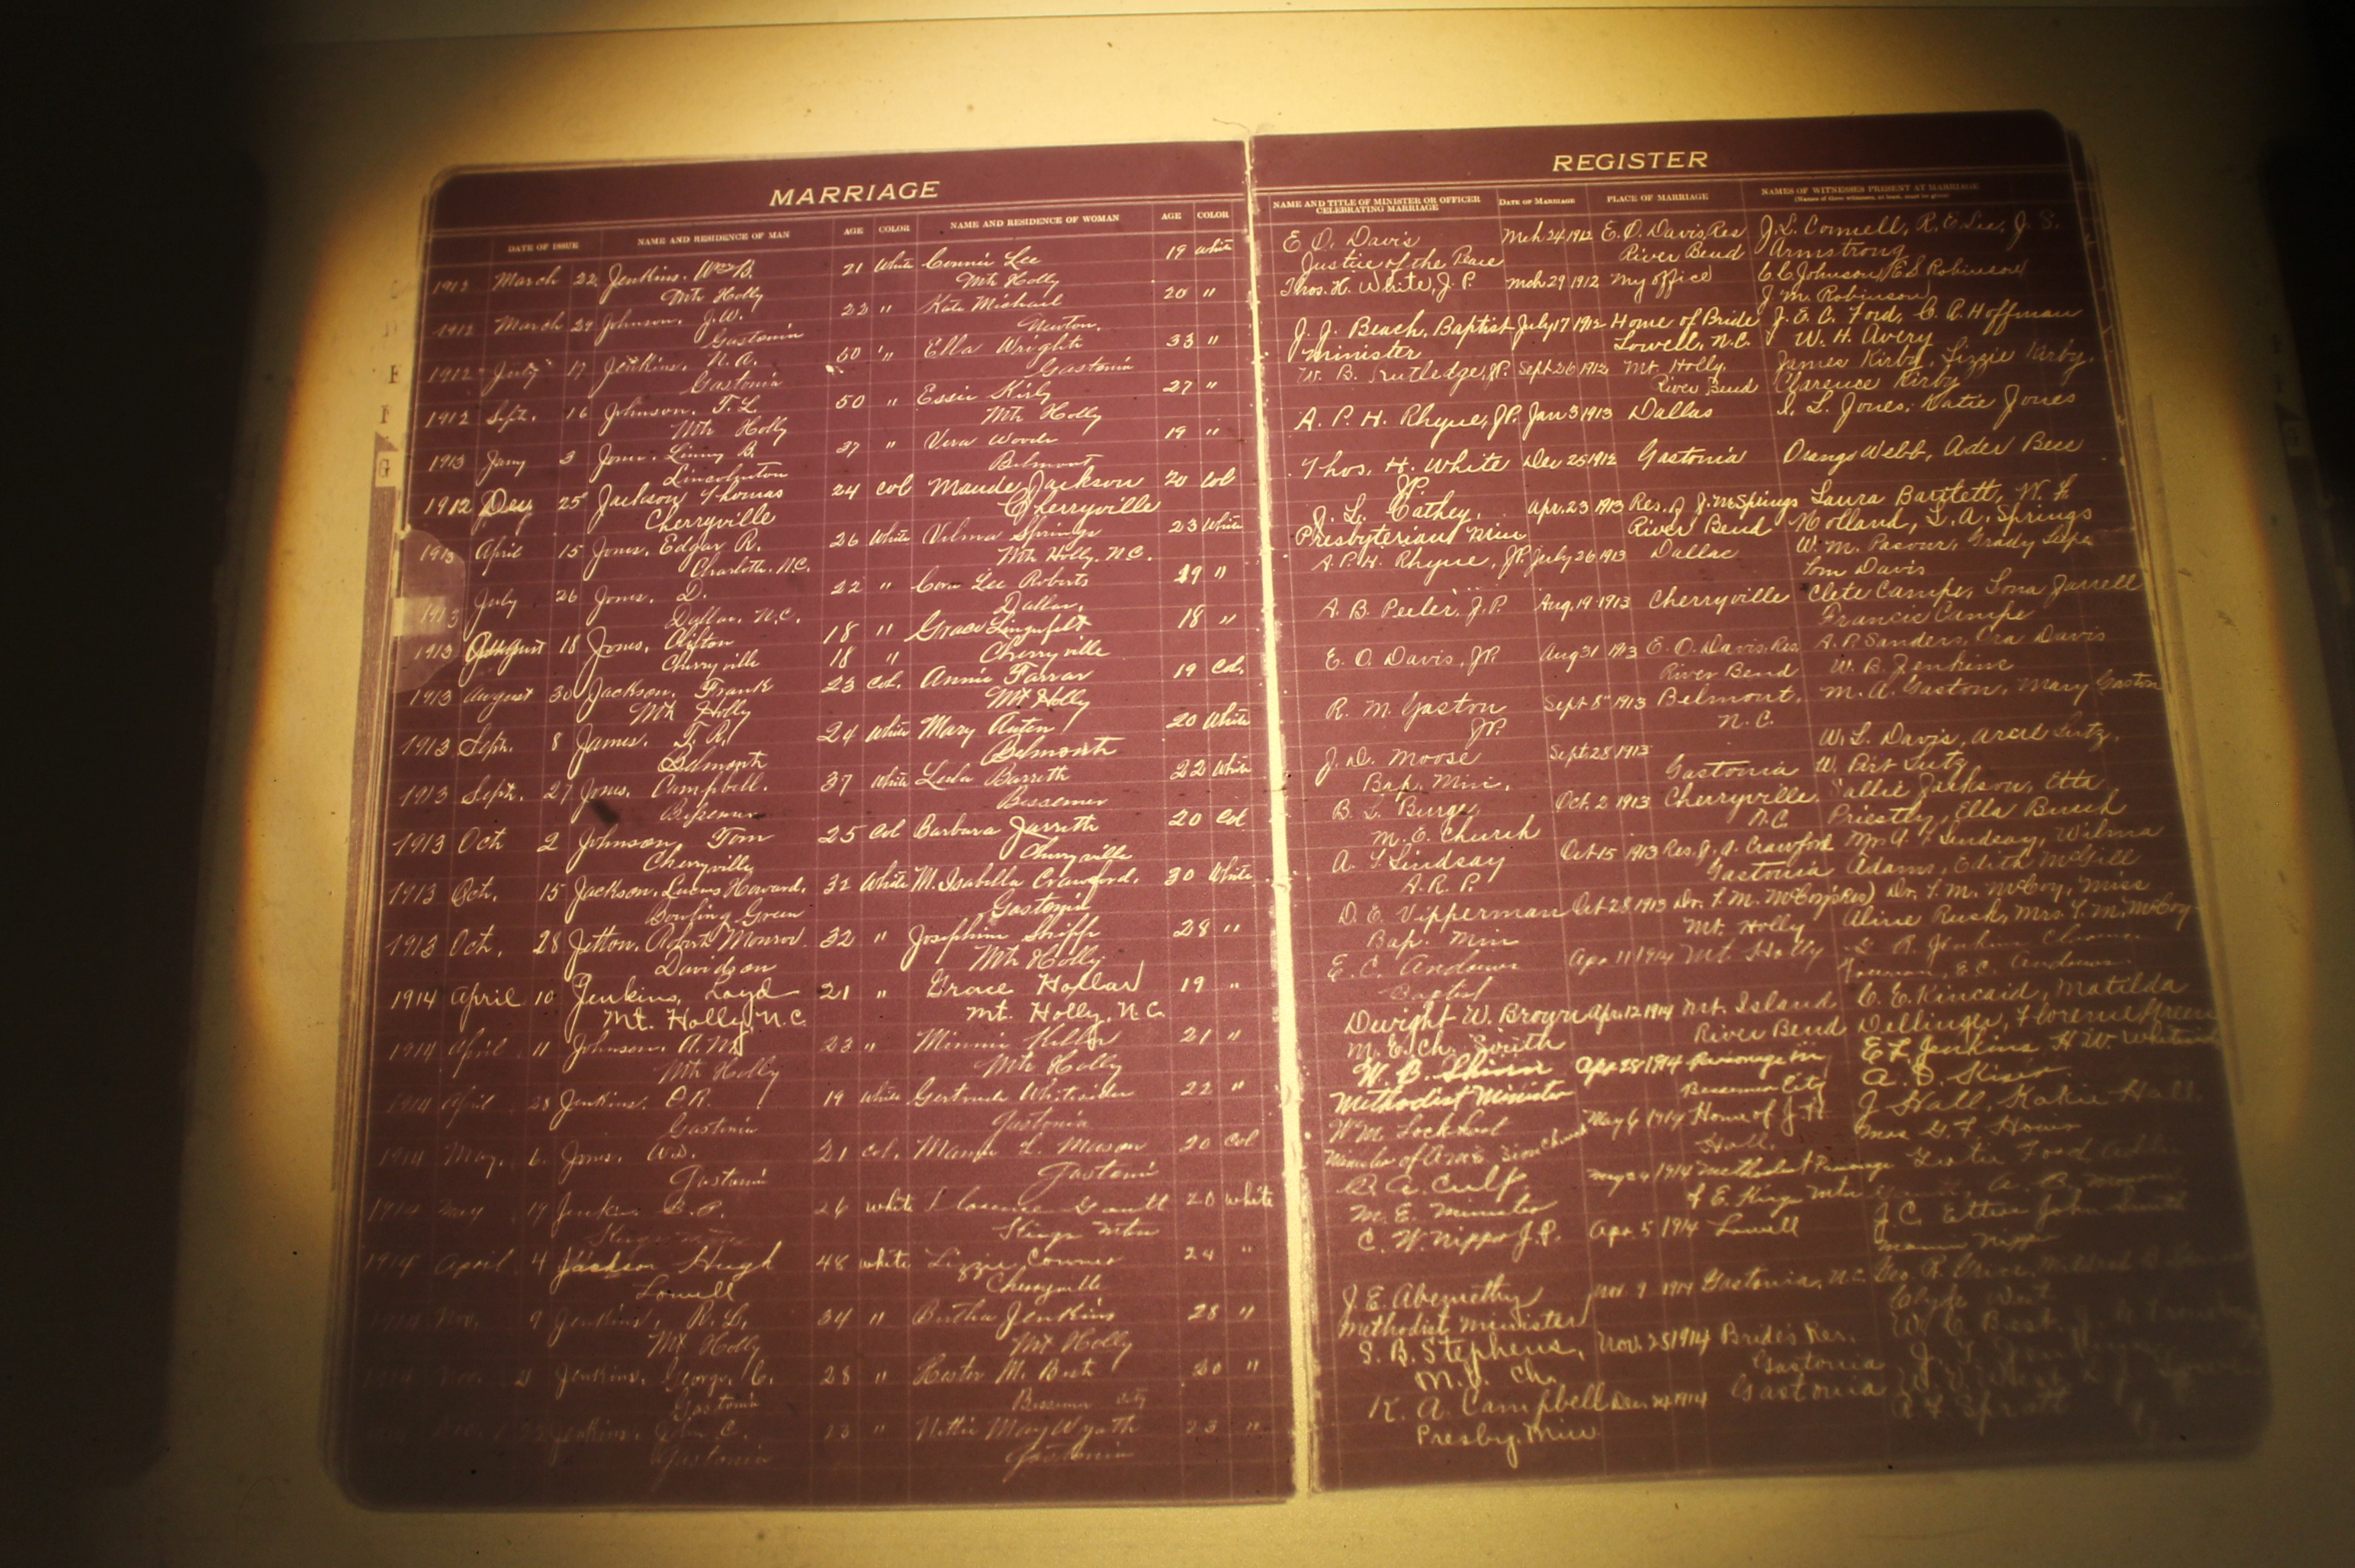 MARRIAGE
DATE OF ISSUE NAME AND RESIDENCE OF MAN AGE COLOR NAME AND RESIDENCE OF WOMAN AGE COLOR
1912 March 22 Jenkins, 21 White Connie Lee 19 white
Mt Holly Mt Holly
1912 March 29 Johnson, J.W. 22 " Kate Michael 20 "
Gastonia Newton.
1912 July 17 Jenkins, N.A. 50 " Ella Wright 33 "
Gastonia Gastonia
1912 Sept. 16 Johnson, T.L. 50 " Essie Kirby 27 "
Mt Holly Mt Holly
1913 Jany 3 Jones, B. 37 " Vera Woods 19 "
Lincolnton Belmont
1912 Dey 25 Jackson Thomas 24 col Maude Jackson 20 col
Cherryville Cherryville
1913 April 15 Jones, Edgar R. 26 White Velma Springs 23 White
Charlotte, N.C. Mt Holly, N.C.
1913 July 26 Jones, D. 22 " Lee Roberts 19 "
Dallas, N.C. Dallas,
1913 August 18 Jones, Clifton 18 " Grace Lingerfelt 18 "
Cherryville 18 " Cherryville
1913 August 30 Jackson, Frank 23 col. Annie Farrar 19 Col.
Mt Holly Mt Holly
1913 Sept. 8 James, T.R. 24 White Mary Auten 20 White
Belmont Belmont
1913 Sept. 27 Jones, Campbell. 37 White Lula Barrett 22 White
Bessemer Bessemer
1913 Oct 2 Johnson, Tom 25 Col Barbara Jarrett 20 Col
Cherryville Cherryville
1913 Oct. 15 Jackson, Lucus Howard. 32 White M. Isabella Crawford. 30 White
Bowling Green Gastonia
1913 Oct. 28 Jetton, Robert Monroe. 32 " Josephine Shipp 28 "
Davidson Mt Holly
1914 April 10 Jenkins, Loyd 21 " Grace Hollar 19 "
Mt. Holly, N.C. Mt. Holly, N.C.
1914 April 11 Johnson, A.M. 23 " Minnie Killer 21 "
Mt Holly Mt Holly
1914 April 28 Jenkins, O.R. 19 White Gertrude Whitesides 22 "
Gastonia Gastonia
1914 May. 6 Jones, W.S. 21 Col. L. Mason 20 Col
Gastonia Gastonia
1914 May 19 Jenkins 26 white Florence Gantt 20 white
Kings Mtn
1914 April 4 Jackson Hugh 48 white Lizzie Conner 24 "
Lowell Cherryville
Nov. 9 Jenkins, R.L. 34 " Bertha Jenkins 28 "
Mt Holly Mt Holly
21 Jenkins, George C. 28 " Hester M. Best 20 "
Gastonia Bessemer City
Jenkins, John C. 23 " Nettie May Wyatt 23 "
Gastonia Gastonia
REGISTER
NAME AND TITLE OF MINISTER OR OFFICER CELEBRATING MARRIAGE DATE OF MARRIAGE PLACE OF MARRIAGE NAMES OF WITNESSES PRESENT AT MARRIAGE
E.O. Davis Mch 24 1912 E.O. Davis Res J.L. Connell, R.E. Lee, J.S.
Justice of the Peace River Bend Armstrong
Thos. H. White, J.P. Mch 29 1912 My office C C Johnson, E.S. Robinson
J.M. Robinson
J.J. Beach, Baptist July 17 1912 Home of Bride J.E.C. Ford, C.P. Hoffman
Minister Lowell, N.C. W.H. Avery
W.B. Rutledge, J.P. Sept 26 1912 Mt. Holly, James Kirby, Lizzie Kirby,
River Bend Clarence Kirby
A.P.H. Rhyne, J.P. Jan 3 1913 Dallas L. Jones, Katie Jones
Thos. H. White Dec 25 1912 Gastonia Orange Webb, Ader Bell
J.P.
J.L. Cathey, Apr. 23 1913 Res. of J. McSprings Laura Bartlett, W.L.
Presbyterian Min River Bend Holland, L.A. Springs
A.P.H. Rhyne, J.P. July 26 1913 Dallas W.M. Pasour, Grady
Tom Davis
A.B. Peeler, J.P. Aug. 19 1913 Cherryville Clete Campe, Lona Jarrell
Francis Campe
E.O. Davis, J.P. Aug 31 1913 E.O. Davis, Res. A.P. Sanders, Ora Davis
River Bend W.B. Jenkins
R.M. Gaston Sept 8" 1913 Belmont, M.A. Gaston, Mary Gaston
J.P. N.C.
J.D. Moose Sept. 28 1913 W.L. Davis, Lutz,
Bap. Min. Gastonia W. Lutz
B.L. Burge Oct. 2 1913 Cherryville, Sallie Jackson, Etta
M.E. Church N.C. Priestly, Ella Burch
A Lindsay Oct 15 1913 Res. J.A. Crawford Mrs A Lindsay, Wilma
A.R.P. Gastonia Adams, Edith McGill
D.E. Vipperman Oct 28 1913 Dr. McCoy's Res) Dr. McCoy, Miss
Bap. Min Mt. Holly Aline Rush, Mrs. McCoy
E.C. Andrews Apr 11 1914 Mt Holly R. Jenkins
Baptist E.C. Andrews
Dwight W. Brown Apr. 12 1914 Mt. Island C.E. Kincaid, Matilda
M.E. Ch. South River Bend Dellinger, Florence Greene
W.B. Shinn Apr 28 1914 Parsonage in E L Jenkins H W.
Methodist Minister Bessemer City
W.M. May 6 1914 Home of J.H. J Hall, Katie Hall
Member of Zion Church Hall. Mrs
Culp May 24 1914 Methodist Parsonage
M.E. Minister Kings Mtn
C.W. Nipper J.P. Apr. 5 1914 Lowell J.C. John Smith
J.E. Abernethy Nov. 9 1914 Gastonia, N.C. Mildred
Methodist Minister Clyde
S.B. Stephens, Nov. 25 1914 Bride's Res. W.C. Best
M.P. Ch. Gastonia
K.A. Campbell Dec 1914 Gastonia
Presby. Min